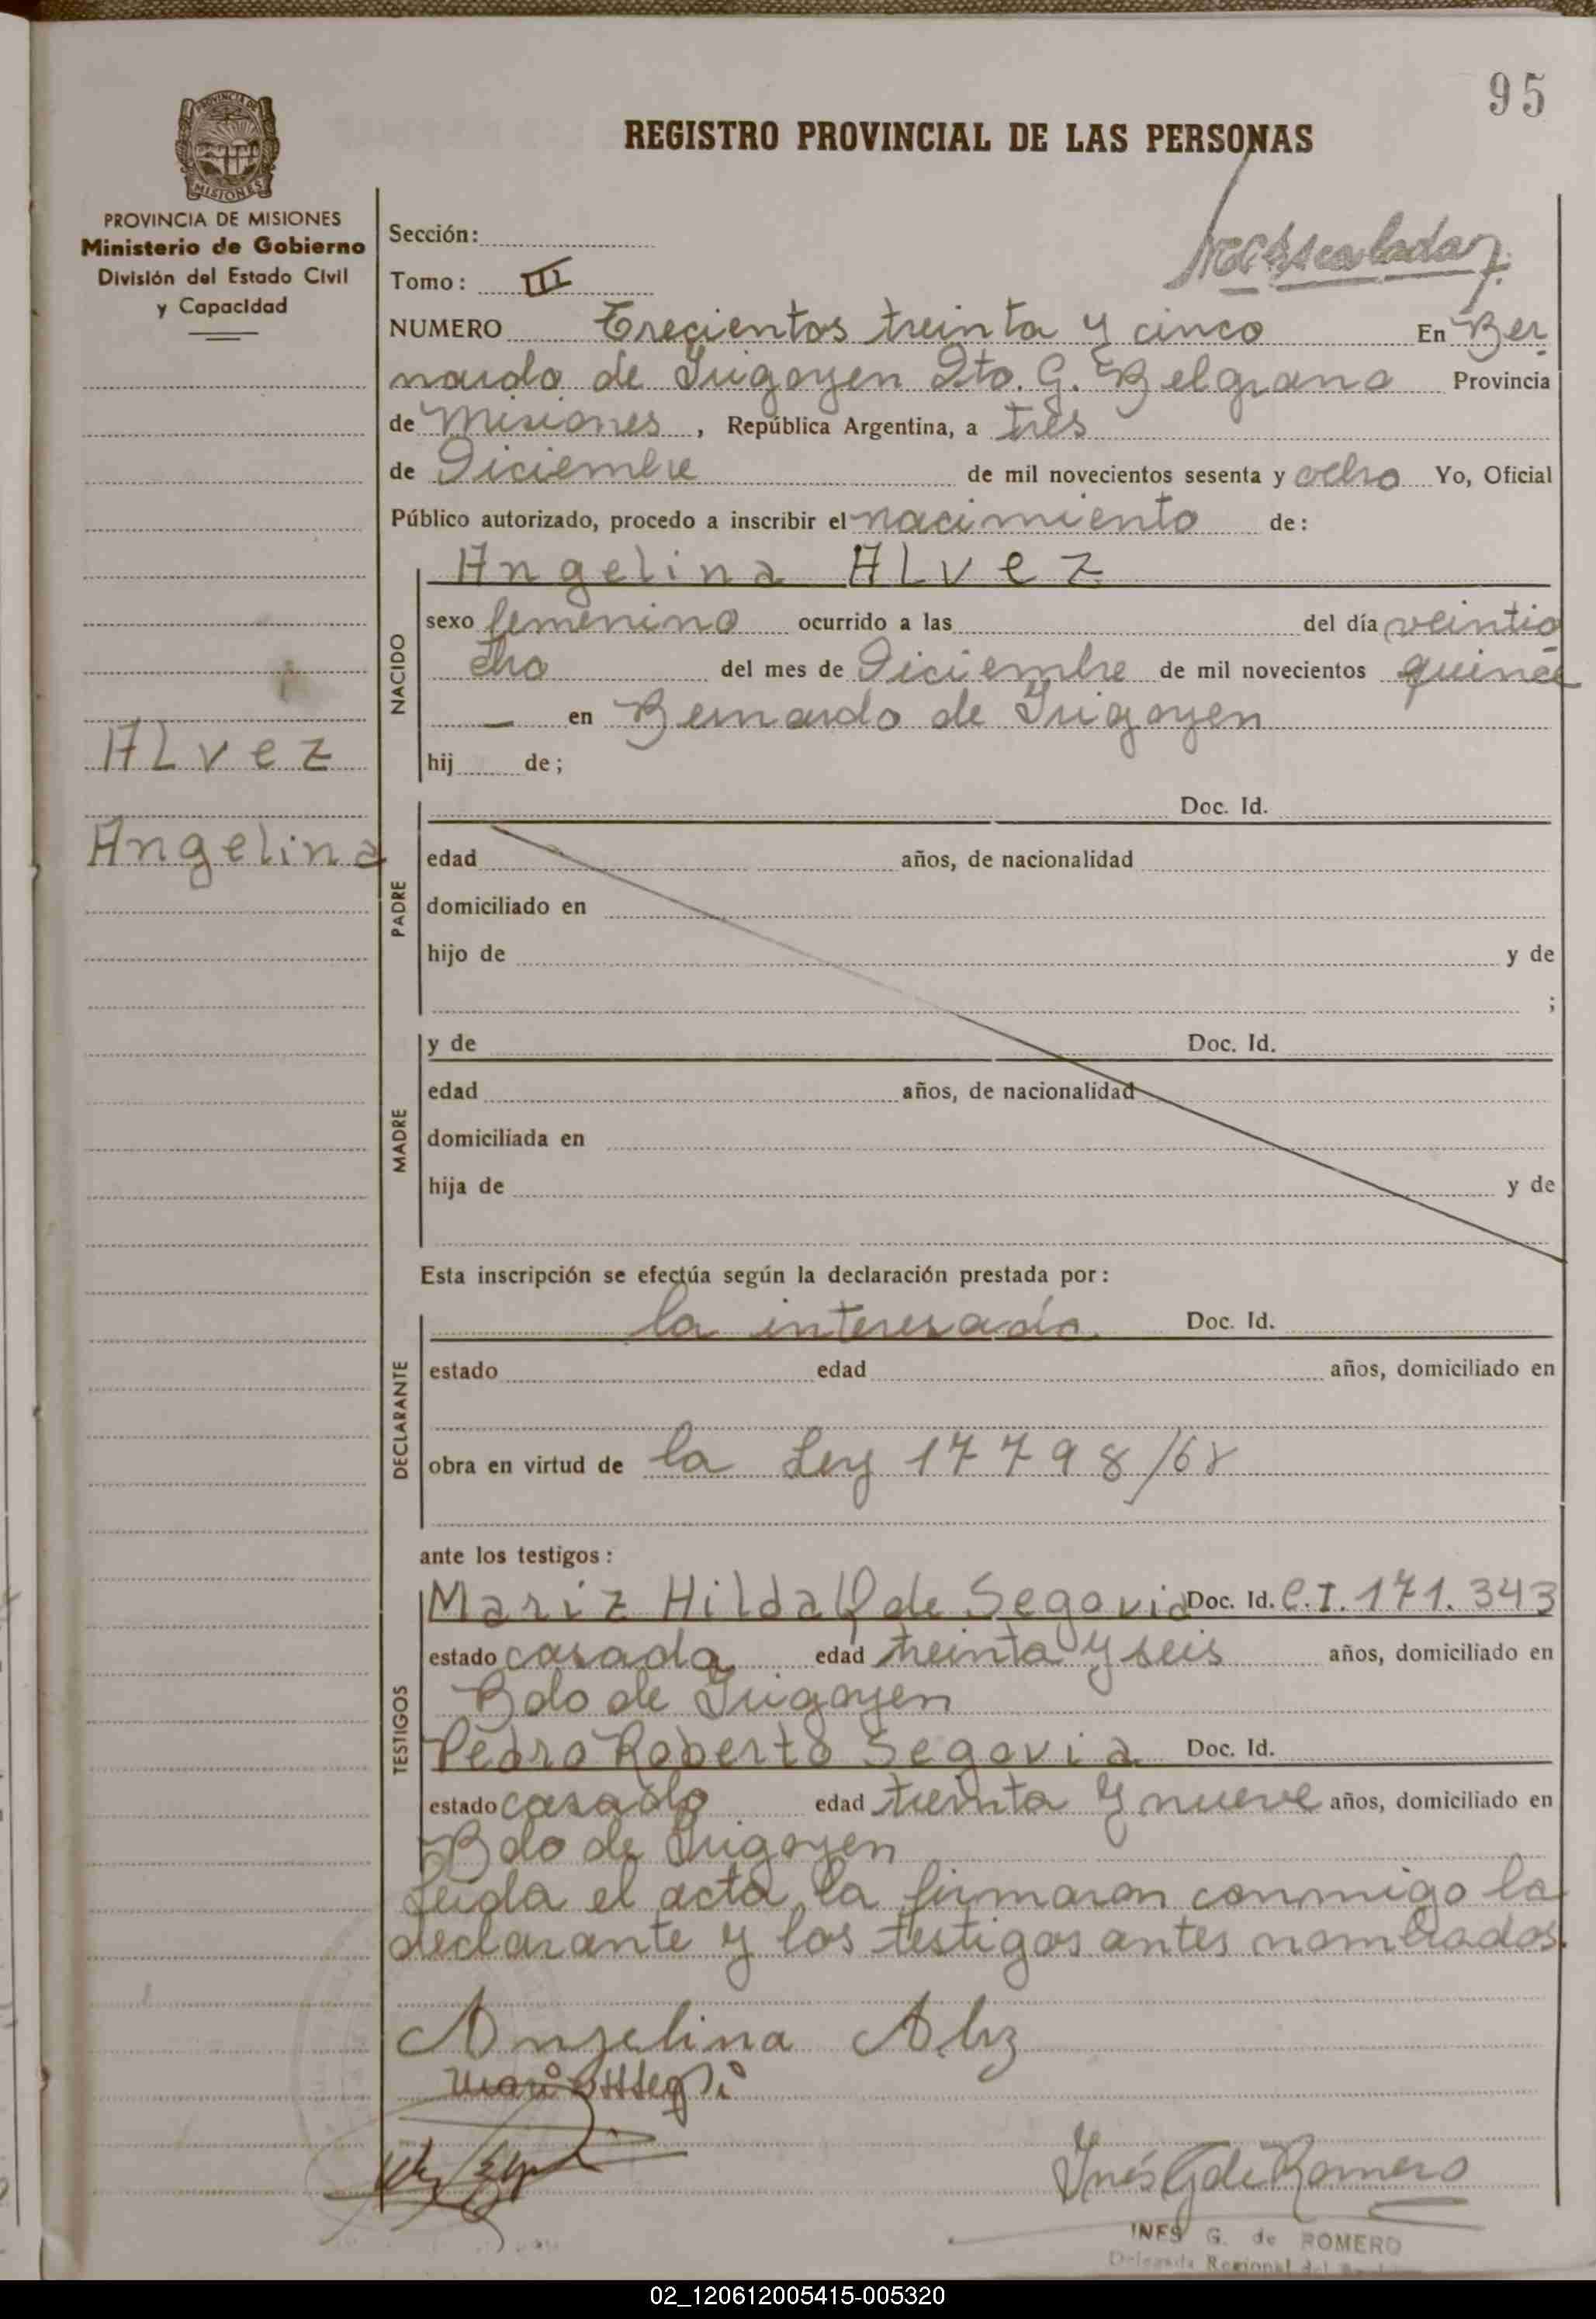 95
PROVINCIA DE
MISIONES
REGISTRO PROVINCIAL DE LAS PERSONAS
PROVINCIA DE MISIONES
Ministerio de Gobierno
División del Estado Civil
y Capacidad
Sección:
Tomo: III
NUMERO Trecientos treinta y cinco En Ber
nardo de Irigoyen Dto. G. Belgrano Provincia
de Misiones, República Argentina, a tres
de Diciembre de mil novecientos sesenta y ocho Yo, Oficial
Público autorizado, procedo a inscribir el nacimiento de:
Angelina ALvez
NACIDO
sexo femenino ocurrido a las del día veintio
cho del mes de Diciembre de mil novecientos quince
— en Bernardo de Irigoyen
hij de;
ALvez
Angelina
PADRE
Doc. Id.
edad años, de nacionalidad
domiciliado en
hijo de y de
;
MADRE
y de Doc. Id.
edad años, de nacionalidad
domiciliada en
hija de y de
Esta inscripción se efectúa según la declaración prestada por:
DECLARANTE
la interesada Doc. Id.
estado edad años, domiciliado en
obra en virtud de la Ley 17798/68
ante los testigos:
TESTIGOS
Hilda de Segovia Doc. Id. C.I. 171.343
estado casada edad treinta y seis años, domiciliado en
Bdo de Irigoyen
Pedro Roberto Segovia Doc. Id.
estado casado edad treinta y nueve años, domiciliado en
Bdo de Irigoyen
Leida el acta, la firmaron conmigo la
declarante y los testigos antes nombrados.
Angelina Alvz
Inés G de Romero
INES G. de ROMERO
Delegada Regional del
02_120612005415-005320